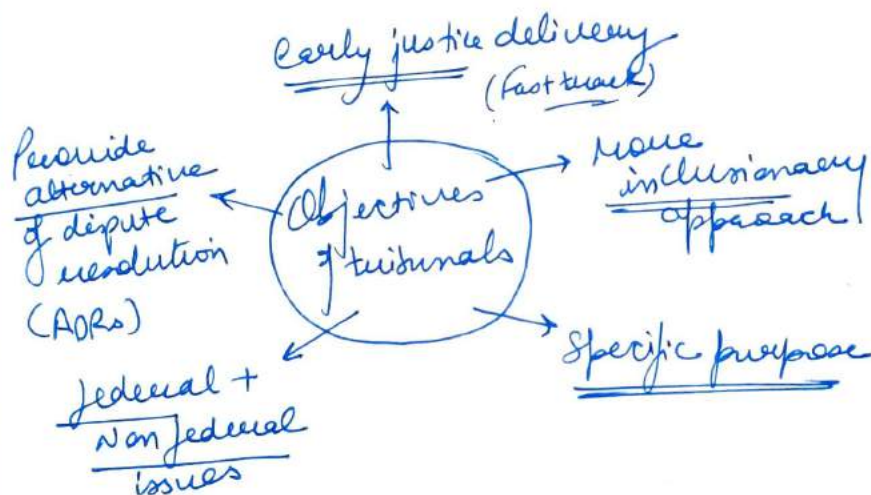 Early justice delivery
(Fast track)
Provide
alternative
of dispute
resolution
(ADRs)
Objectives
of tribunals
More
inclusionary
approach
Specific purpose
federal +
Non federal
issues